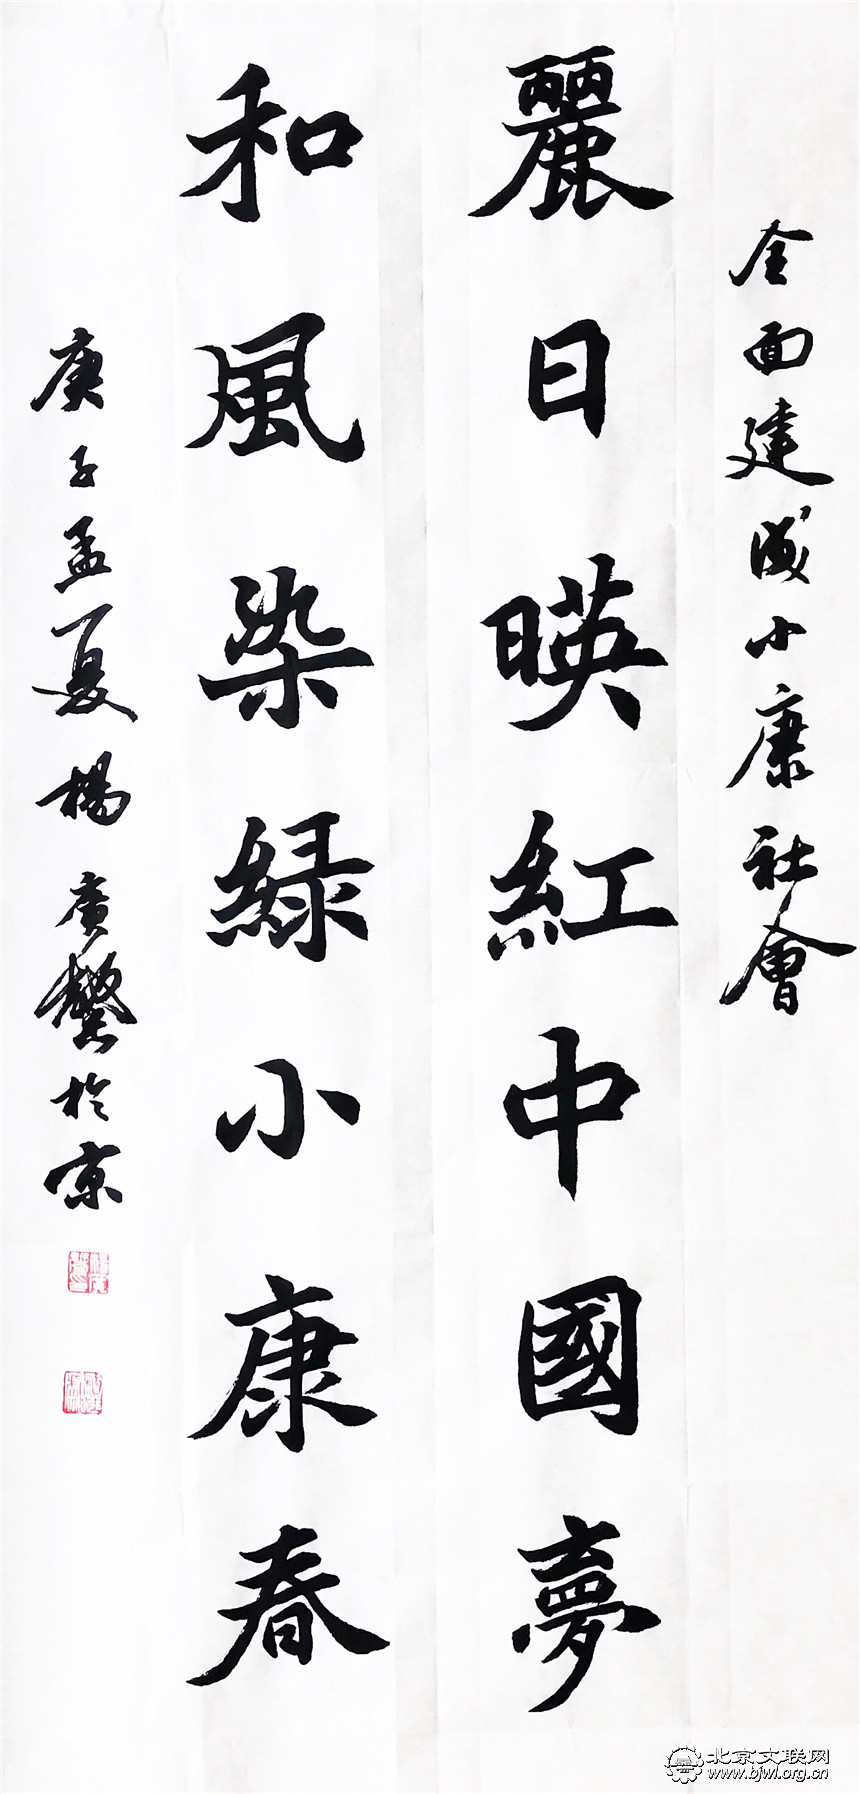 全面建成小康社會
麗日暎紅中國夢
和風染緑小康春
庚子孟夏楊廣馨於京
北京文联网
www.bjwl.org.cn